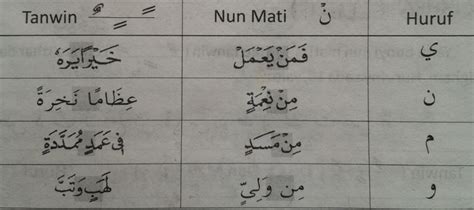 Tanwin ـً ـٍ ـٌ Nun Mati نْ Huruf
خَيْرًا يَرَهُ فَمَنْ يَعْمَلْ ي
عِظَامًا نَخِرَةً مِنْ نِعْمَةٍ ن
فِى عَمَدٍ مُمَدَّدَةٍ مِنْ مَسَدٍ م
لَهَبٍ وَتَبَّ مِن وَلِيٍّ و